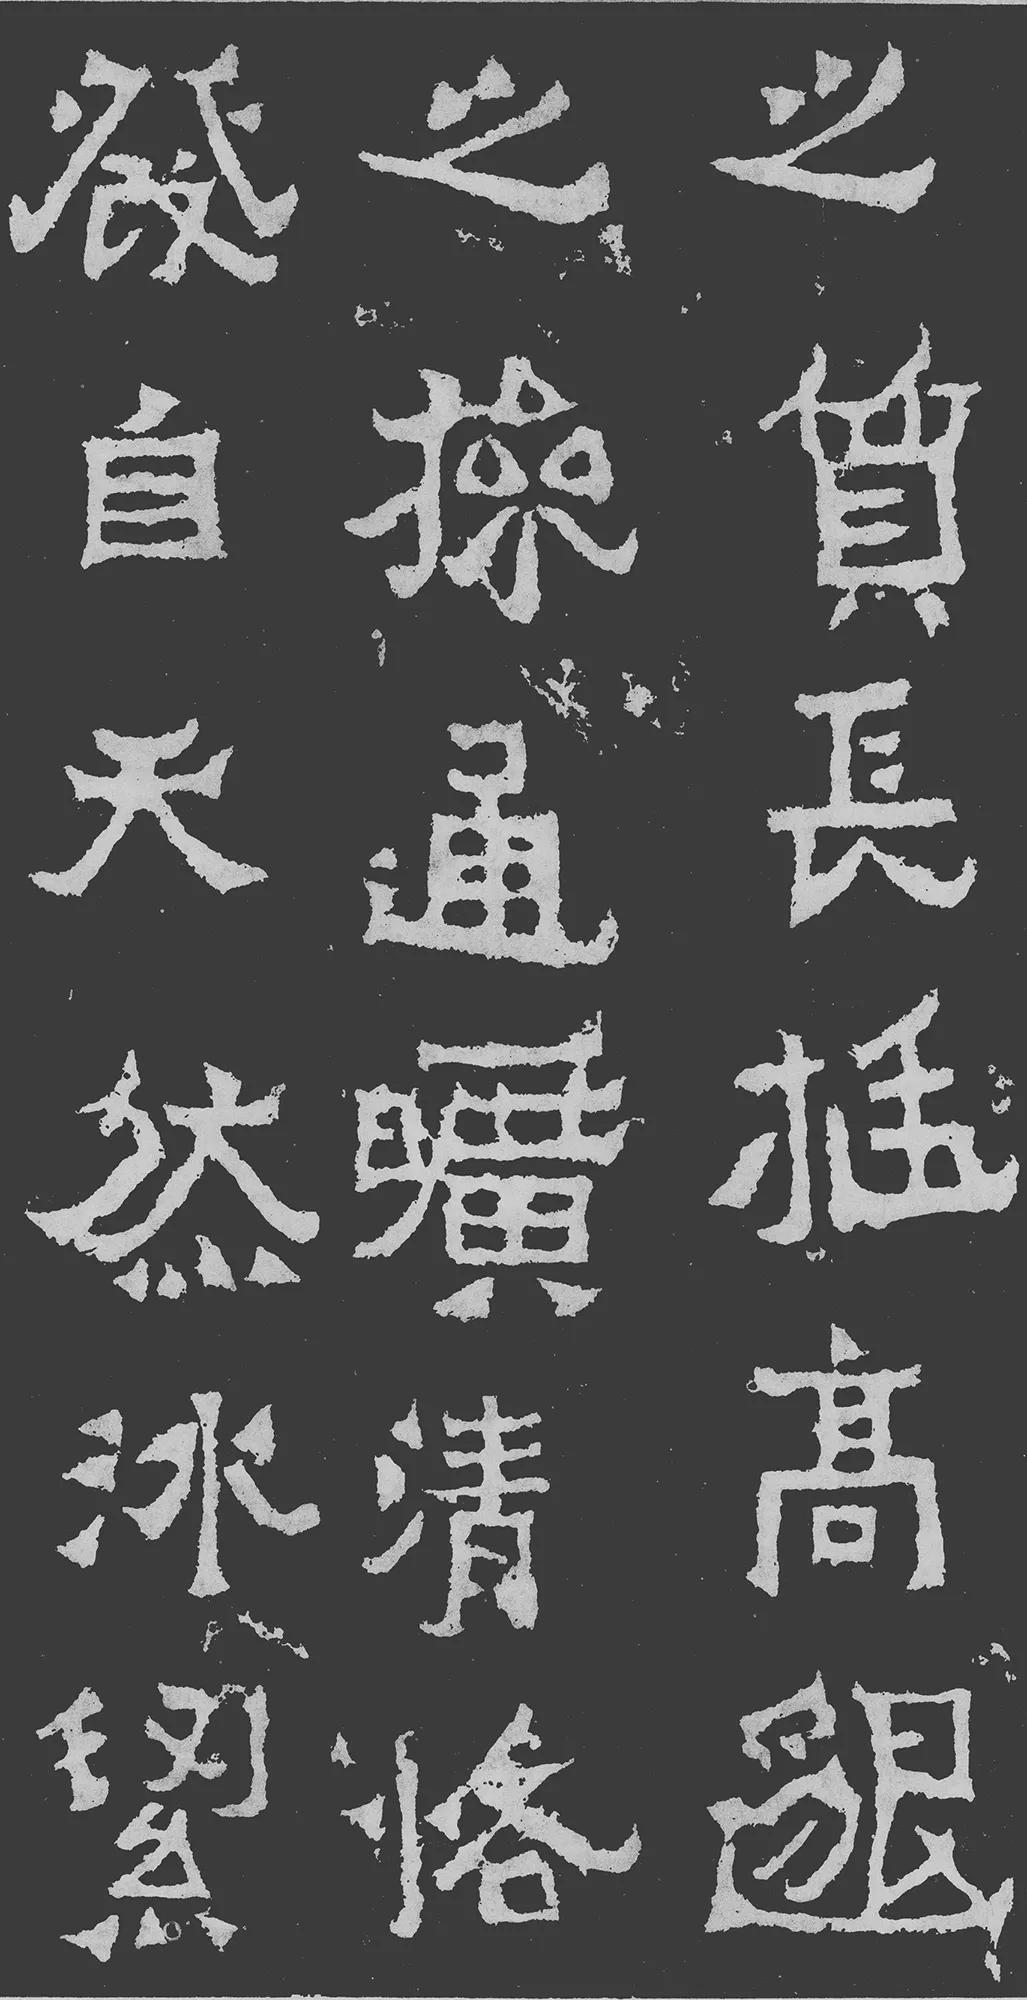 之質長挺高邈
之操通曠清恪
發自天然冰絜